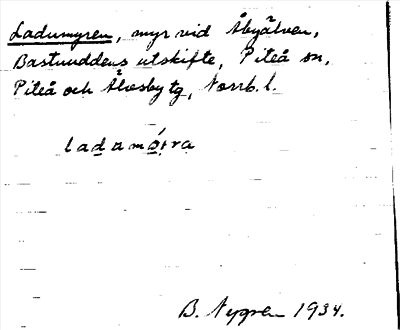 Ladumyren, myr vid Åbyälven,
Bastuuddens utskifte, Piteå sn,
Piteå och Älvsby tg, Norrb. l.
B. Nygren 1934.